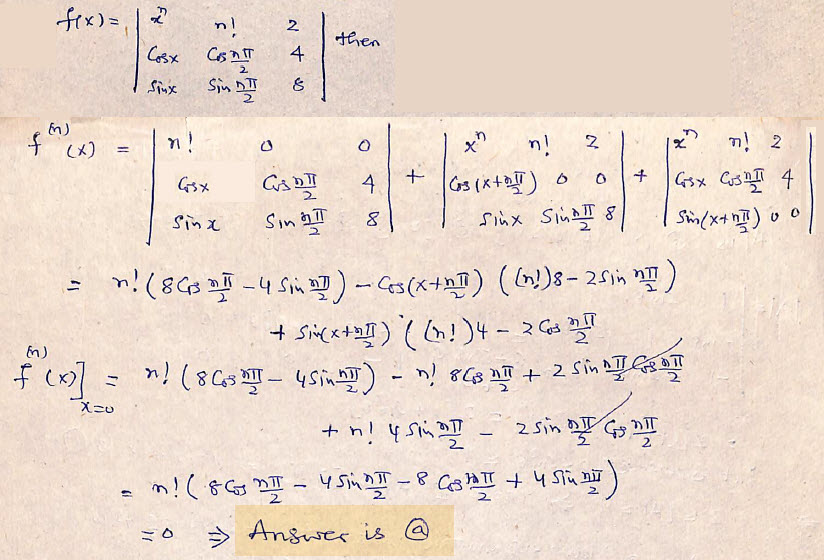 f(x) = | xⁿ n! 2 |
| Cosx Cos nπ/2 4 | then
| Sinx Sin nπ/2 8 |
f⁽ⁿ⁾(x) = | n! 0 0 | + | xⁿ n! 2 | + | xⁿ n! 2 |
| Cosx Cos nπ/2 4 | | Cos(x+nπ/2) 0 0 | | Cosx Cos nπ/2 4 |
| Sin x Sin nπ/2 8 | | Sinx Sin nπ/2 8 | | Sin(x+nπ/2) 0 0 |
= n! (8 Cos nπ/2 - 4 Sin nπ/2) - Cos(x+nπ/2) ((n!)8 - 2 Sin nπ/2)
+ Sin(x+nπ/2) ((n!)4 - 2 Cos nπ/2
f⁽ⁿ⁾(x)]x=0 = n! (8 Cos nπ/2 - 4 Sin nπ/2) - n! 8 Cos nπ/2 + 2 Sin nπ/2 Cos nπ/2
+ n! 4 Sin nπ/2 - 2 Sin nπ/2 Cos nπ/2
= n! (8 Cos nπ/2 - 4 Sin nπ/2 - 8 Cos nπ/2 + 4 Sin nπ/2)
= 0 ⇒ Answer is ⓐ